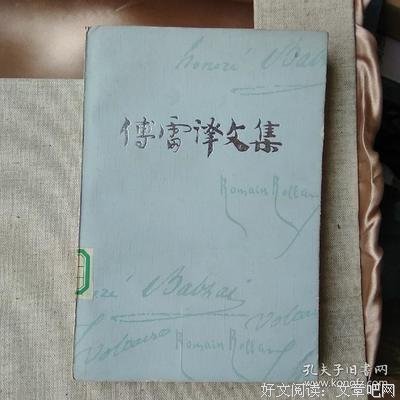 honoré Balz
傅雷译文集
Romain Rollan
Balzac
Voltaire
Romain Roll
Voltaire
孔夫子旧书网
www.kongfz.com
好文阅读:文章吧网